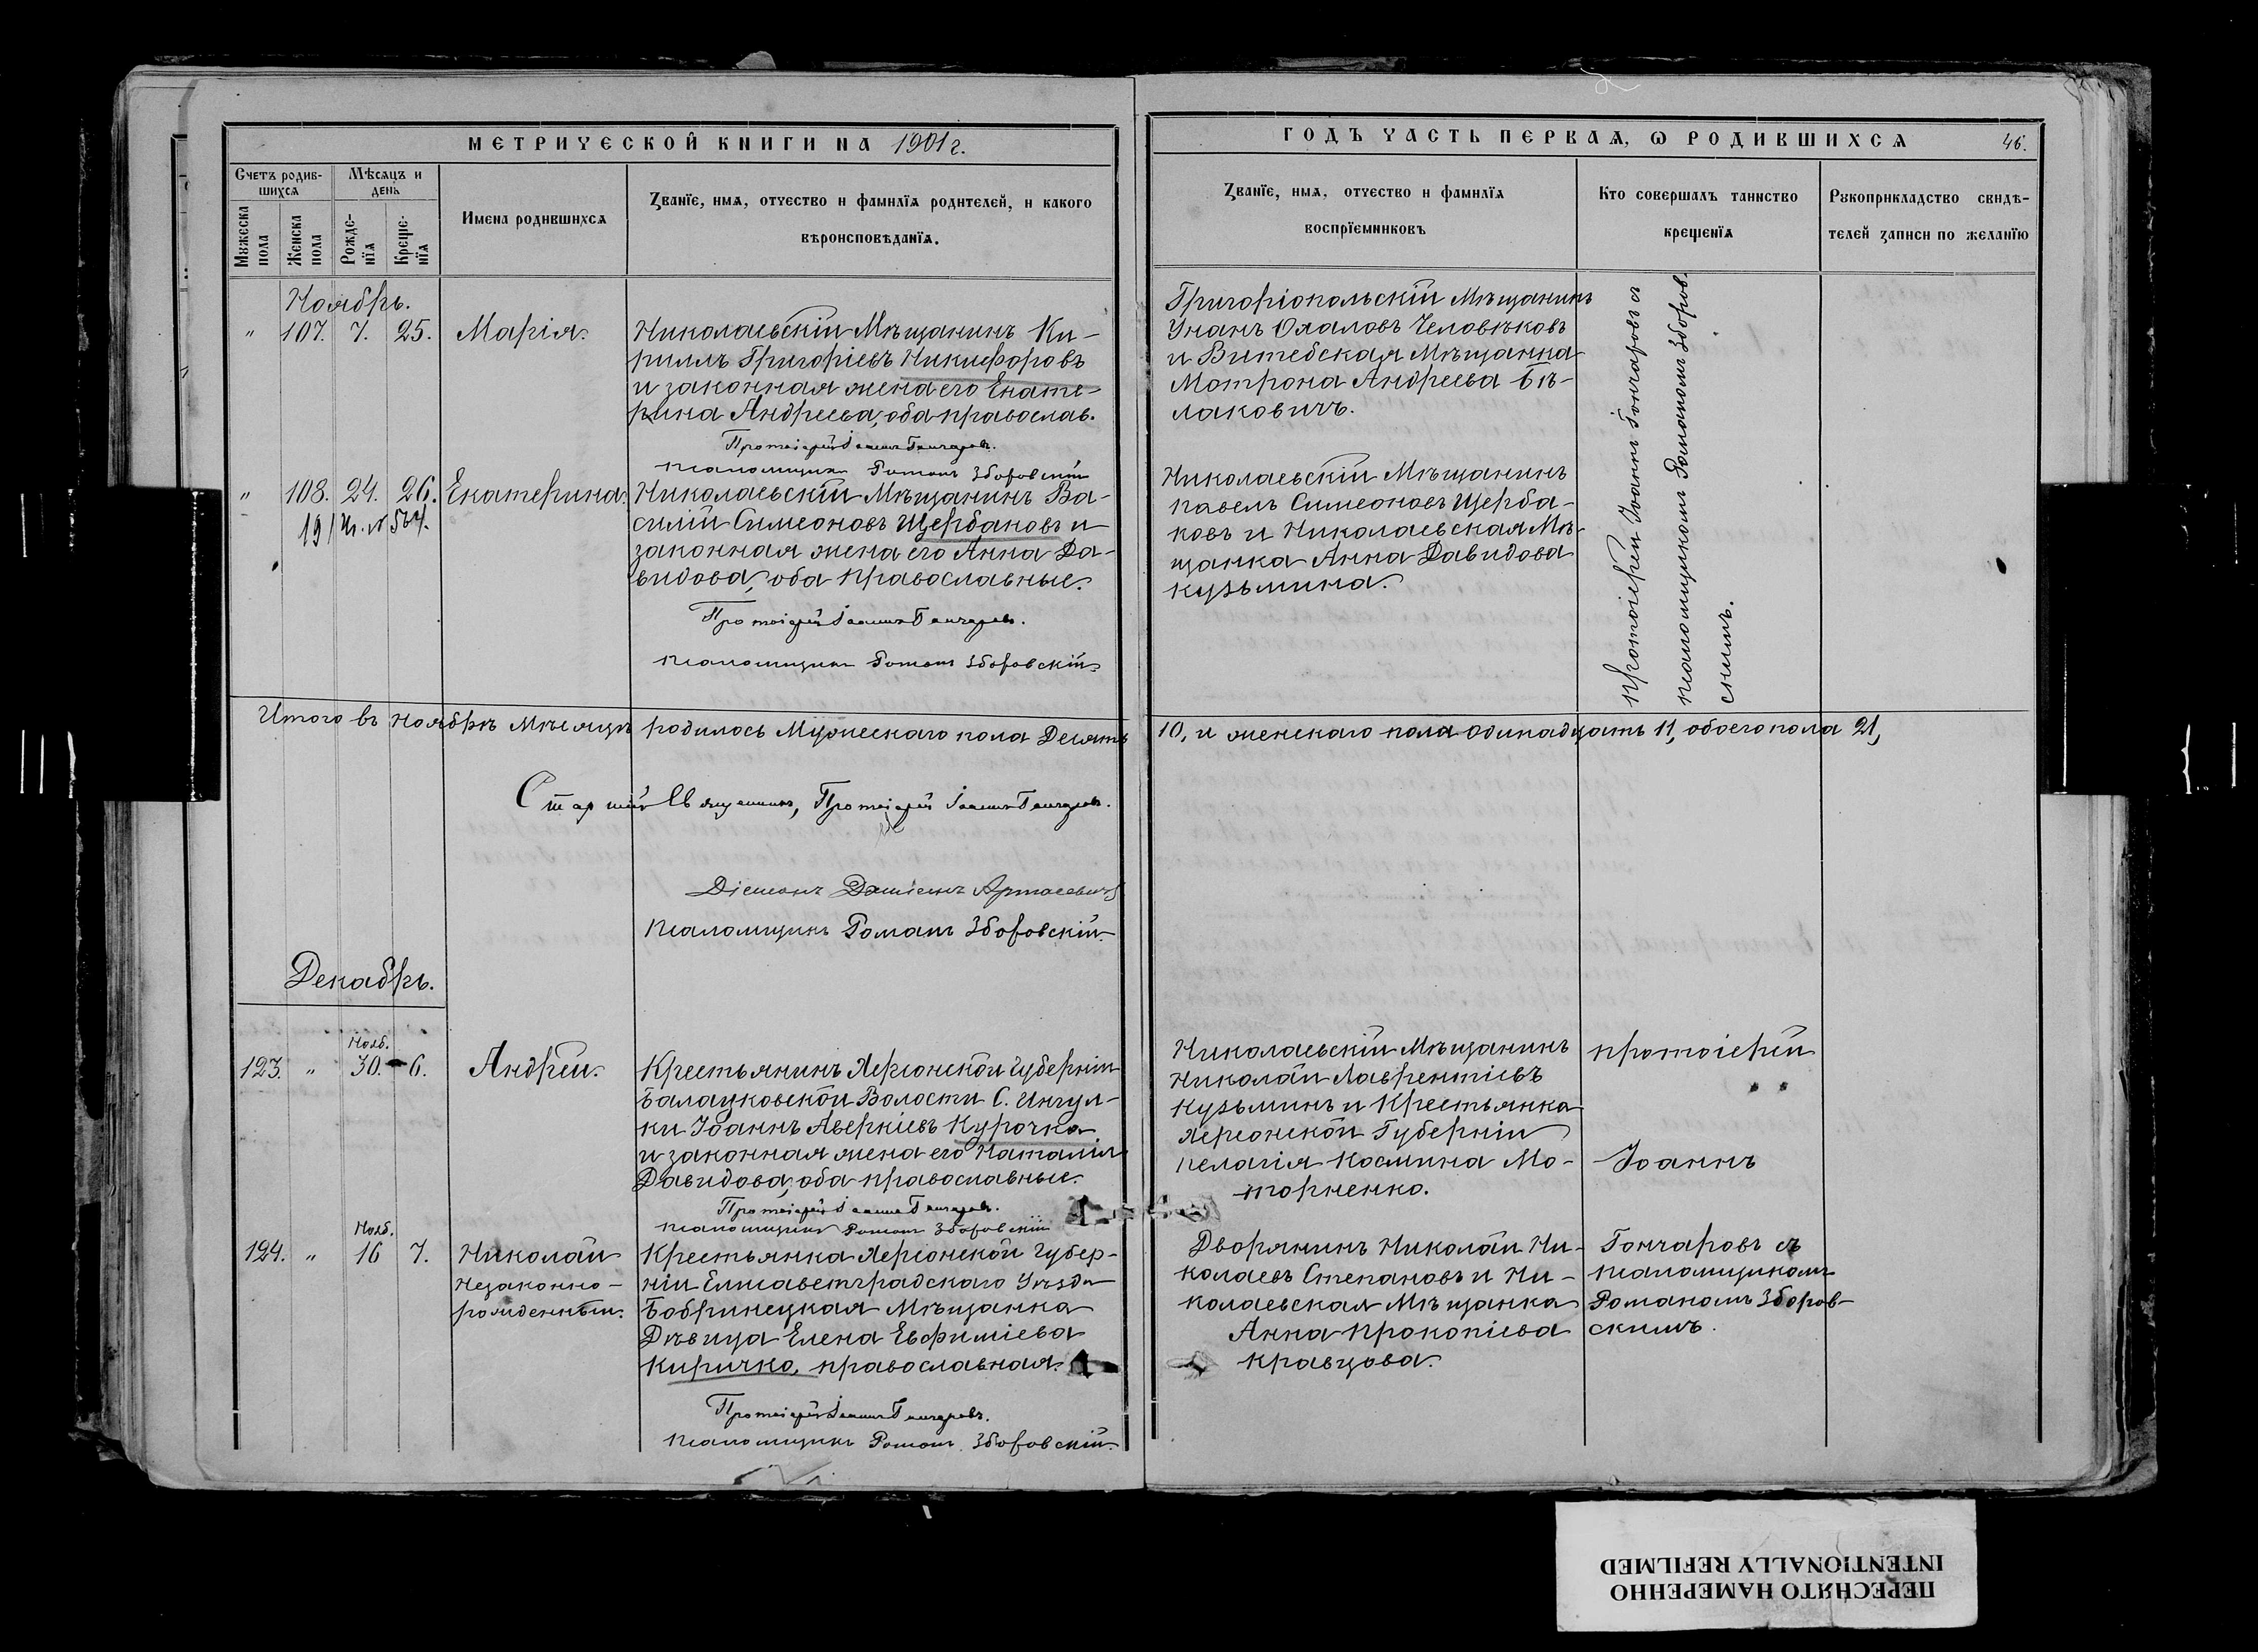 МЕТРИЧЕСКОЙ КНИГИ НА 1901 г.
Счетъ родив-
шихся
Мѣсяцъ и
день
Мужеска
пола
Женска
пола
Рожде-
нія
Креще-
нія
Имена родившихся
Званіе, имя, отчество и фамилія родителей, и какого
вѣроисповѣданія.
Ноябрь.
" 107. 7. 25. Марія.
Николаевскій Мѣщанинъ Ки-
риллъ Григоріевъ Никифоровъ
и законная жена его Екате-
рина Андреева, оба православ.
Протоіерей Іоаннъ Гончаровъ.
Псаломщикъ Романъ Зборовскій
" 108. 24. 26. Екатерина.
Николаевскій Мѣщанинъ Ва-
силій Симеоновъ Щербаковъ и
законная жена его Анна Да-
видова, оба православные.
Протоіерей Іоаннъ Гончаровъ.
Псаломщикъ Романъ Зборовскій
Итого въ Ноябрѣ Мѣсяцѣ родилось Мужескаго пола Десять
Старшій Священникъ, Протоіерей Іоаннъ Гончаровъ.
Діаконъ
Псаломщикъ Романъ Зборовскій
Декабрь.
Нояб.
123. " 30. 6. Андрей.
Крестьянинъ Херсонской Губерніи
Балацковской Волости С. Ингул-
ки Іоаннъ Аверкіевъ Курочка
и законная жена его Наталія
Давидова, оба православные.
Протоіерей Іоаннъ Гончаровъ.
Псаломщикъ Романъ Зборовскій
Нояб.
124. " 16 7. Николай
Незаконно-
рожденный.
Крестьянка Херсонской Губер-
ніи Елисаветградскаго Уѣзда
Бобринецкая Мѣщанка
Дѣвица Елена Евфиміева
Киричко, православная.
Протоіерей Іоаннъ Гончаровъ.
Псаломщикъ Романъ Зборовскій
ГОДЪ ЧАСТЬ ПЕРВАЯ, Ѡ РОДИВШИХСЯ
46.
Званіе, имя, отчество и фамилія
воспріемниковъ
Кто совершалъ таинство
крещенія
Рукоприкладство свидѣ-
телей записи по желанію
Григоріопольскій Мѣщанинъ
Человѣковъ
и Витебская Мѣщанка
Мотрона Андреева Бѣ-
лаковичъ.
Николаевскій Мѣщанинъ
Павелъ Симеоновъ Щерба-
ковъ и Николаевская Мѣ-
щанка Анна Давидова
Кузьмина.
Протоіерей Іоаннъ Гончаровъ съ
псаломщикомъ Романомъ Зборов-
скимъ.
10, и женскаго пола одинадцать 11, обоего пола 21,
Николаевскій Мѣщанинъ
Николай Лаврентіевъ
Кузьминъ и Крестьянка
Херсонской Губерніи
Пелагія Космина Мо-
торненко.
Протоіерей
Іоаннъ
Дворянинъ Николай Ни-
колаевъ Степановъ и Ни-
колаевская Мѣщанка
Анна Прокопіева
Кравцова.
Гончаровъ съ
псаломщикомъ
Романомъ Зборов-
скимъ.
ПЕРЕСНЯТО НАМЕРЕННО
INTENTIONALLY REFILMED